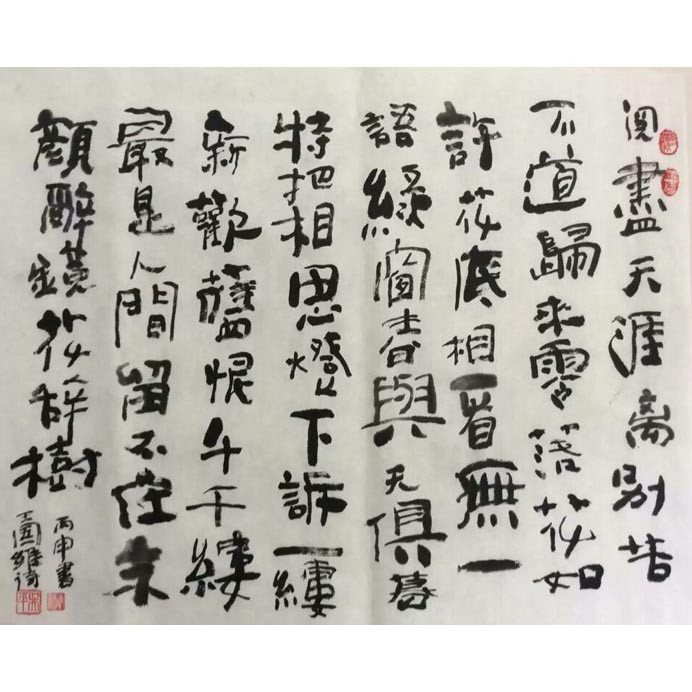 阅盡天涯离别苦
不道歸来零落花如
許花底相看無一
語綠窗春與天俱暮
待把相思燈下訴一縷
新歡舊恨千千縷
最是人間留不住朱
顏辭鏡花辭樹
丙申書
王國維詩